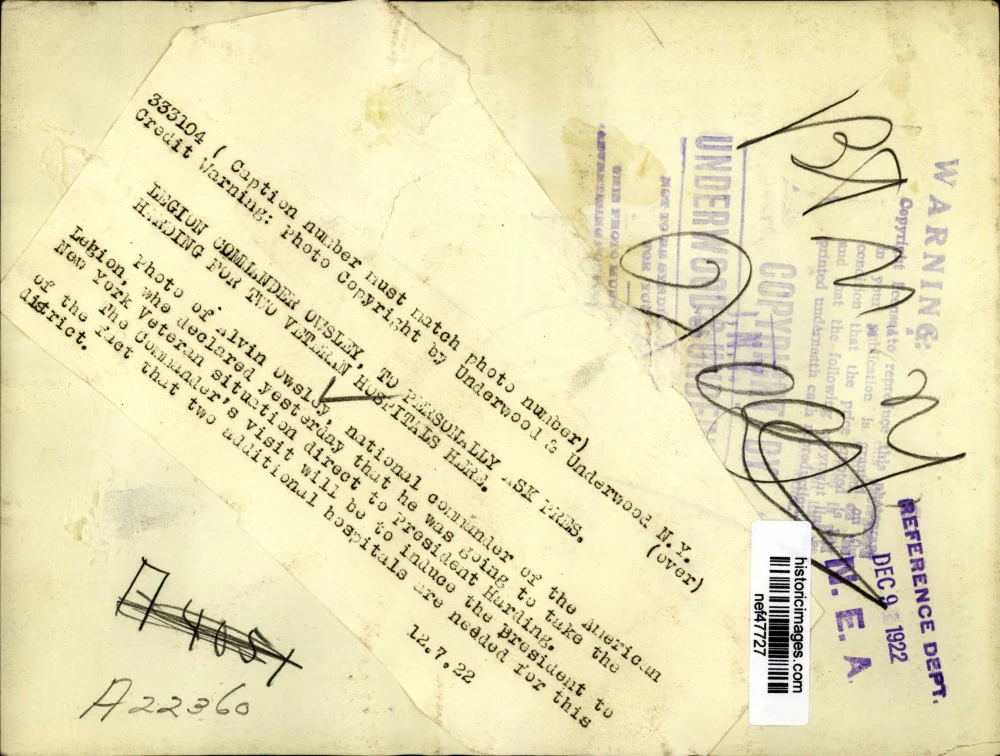 333104 ( Caption number must match photo number)
Credit Warning: Photo Copyright by Underwood & Underwood N.Y.
(over)
LEGION COMMANDER OWSLEY, TO PERSONALLY ASK PRES.
HARDING FOR TWO VETERAN HOSPITALS HERE.
Photo of Alvin Owsley, national commander of the American
Legion, who declared yesterday that he was going to take the
New York Veteran situation direct to President Harding.
The Commander's visit will be to induce the president to
of the fact that two additional hospitals are needed for this
district.
12.7.22
A22360
WARNING:
Copyright
reproduce this
in your publication is
condition that the
and that the following
printed underneath each
COPYRIGHT BY
UNDERWOOD &
N. Y.
REFERENCE DEPT.
DEC 9 1922
N. E. A.
historicimages.com
nef47727